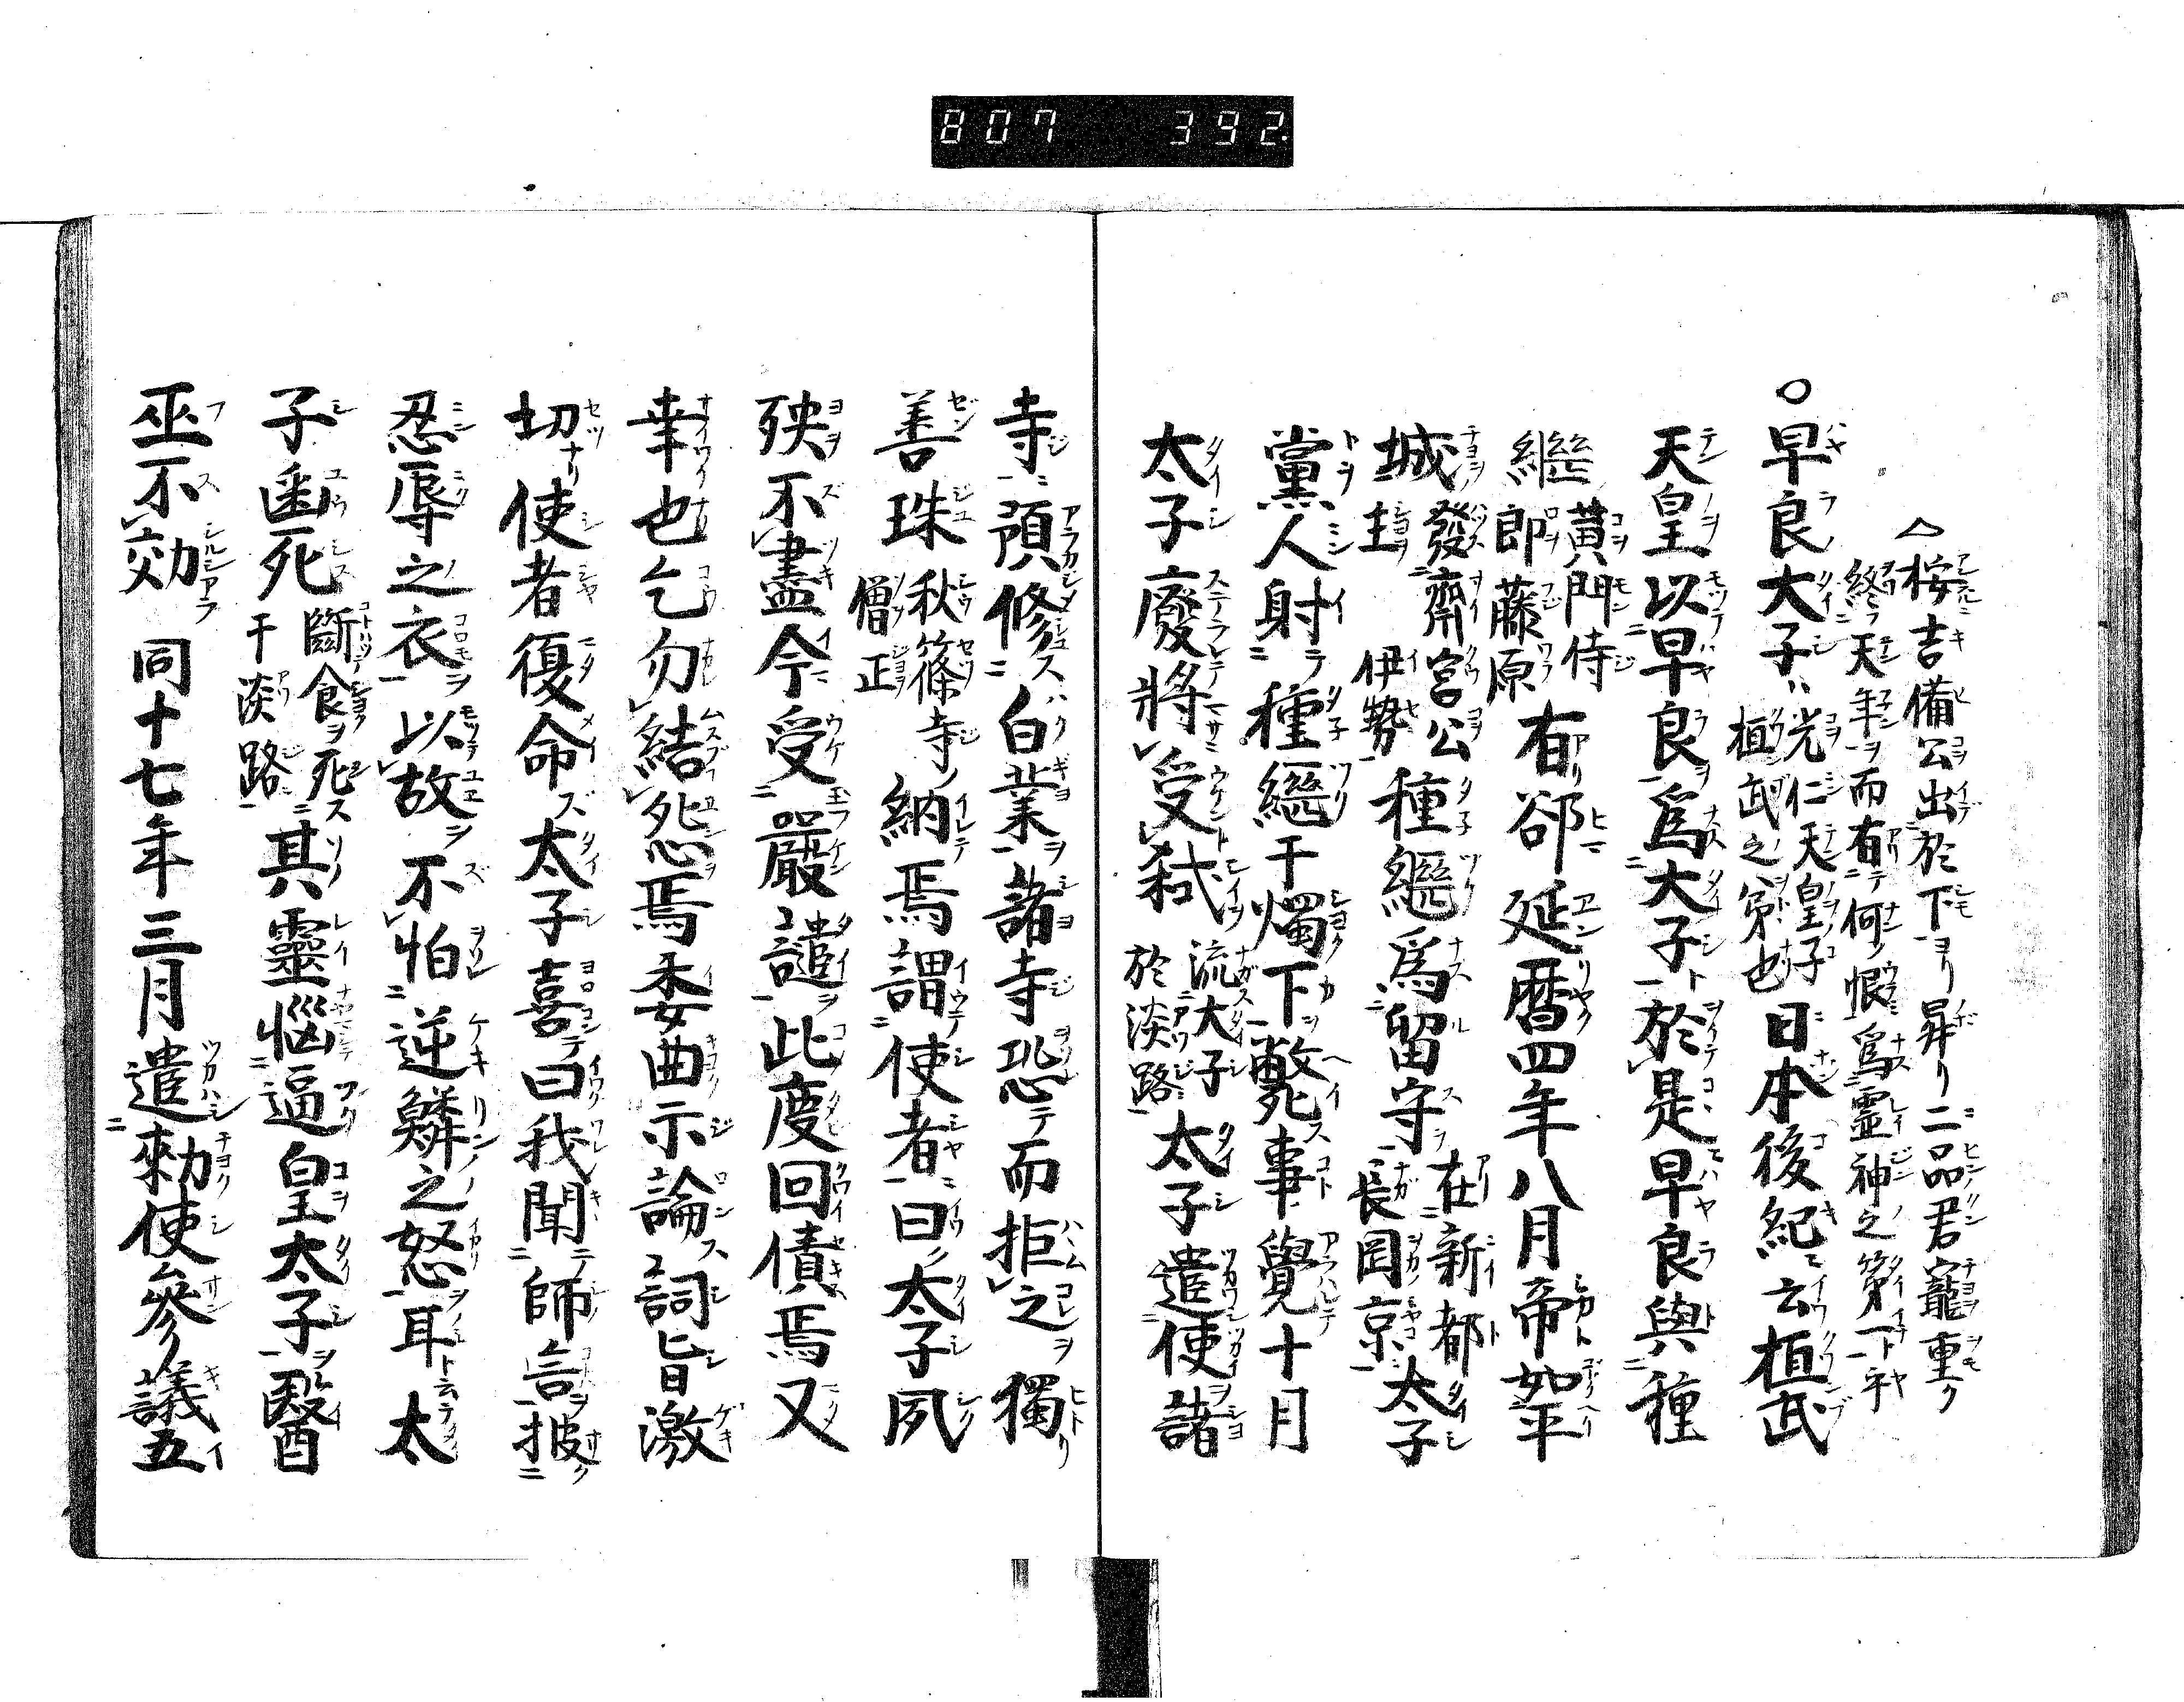 807 392
△桉吉備公出於下ヨリ昇リ二品君寵重ク
終天年ヲ而有テ何ノ恨為霊神之第一ト乎
〇早良大子ハ光仁天皇ノ子
桓武之第也日本後紀ニ云桓武
天皇以早良為大子ト於是早良與種
継黄門侍
郎藤原有郤延暦四年八月帝如平
城發齋宮公
主伊勢種継為留守在新都
長岡京太子
黨人射テ種継于燭下斃事覺十月
太子廢將受弑流大子
於淡路太子遣使諸
寺預修白業ヲ諸寺恐テ而拒之獨
善珠秋篠寺ノ
僧正納焉謂使者曰太子夙
殃不盡今受嚴譴此度回債焉又
幸也乞勿結怨焉委曲示論ス詞旨激
切ナリ使者復命ズ太子喜テ曰我聞師言披
忍辱之衣ヲ以故不怕逆鱗之怒耳ト云テ太
子幽死斷食ヲ死ス
于淡路其靈惱逼皇太子醫
巫不効同十七年三月遣勅使參議五